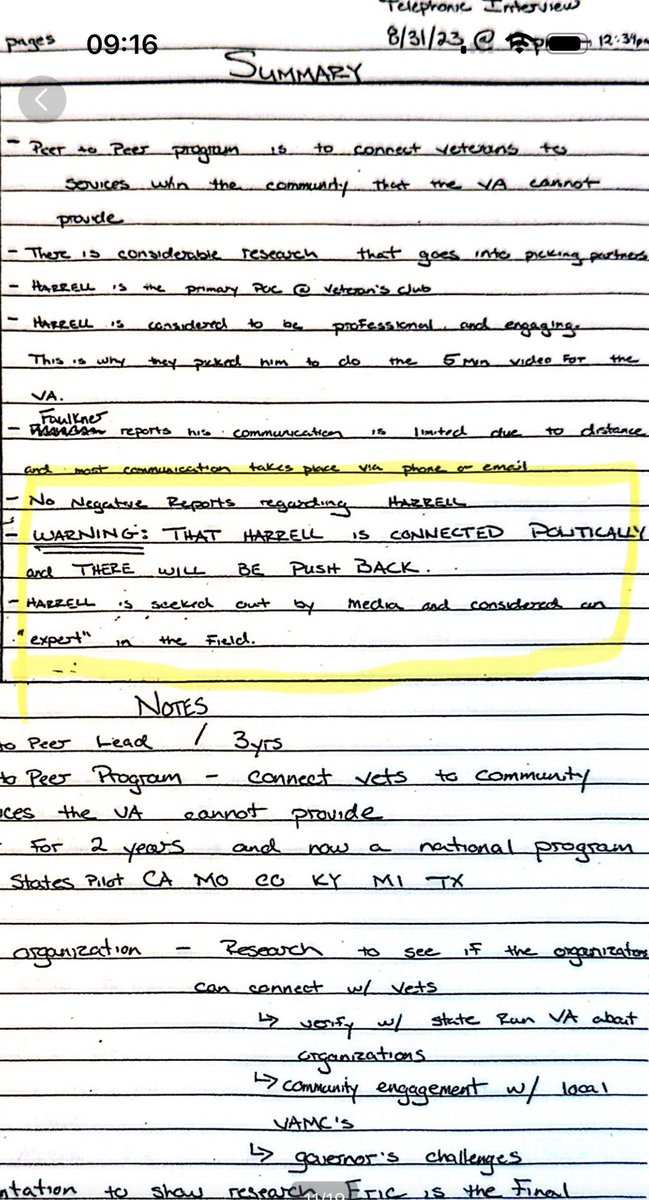 Telephonic Interview
pages 09:16 8/31/23 @ 12:34pm
SUMMARY
- Peer to Peer program is to connect veterans to
sovices w/in the community that the VA cannot
provide
- There is considerable research that goes into picking partners
- HARRELL is the primary POC @ Veteran's club
- HARRELL is considered to be professional and engaging.
This is why they picked him to do the 5 Min video For the
VA.
- Faulkner reports his communication is limited due to distance
and most communication takes place via phone or email
- No Negative Reports regarding HARRELL
- WARNING: THAT HARRELL IS CONNECTED POLITICALLY
and THERE WILL BE PUSH BACK.
- HARRELL is seeked out by media and considered an
"expert" in the Field.
NOTES
to Peer Lead / 3yrs
to Peer Program - connect vets to community
ces the VA cannot provide
For 2 years and now a national program
States Pilot CA MO CO KY MI TX
organization - Research to see if the organizations
can connect w/ vets
↳ verify w/ state Run VA about
organizations
↳ community engagement w/ local
VAMC's
↳ governor's challenges
ntation to show research Eric is the Final
11/19